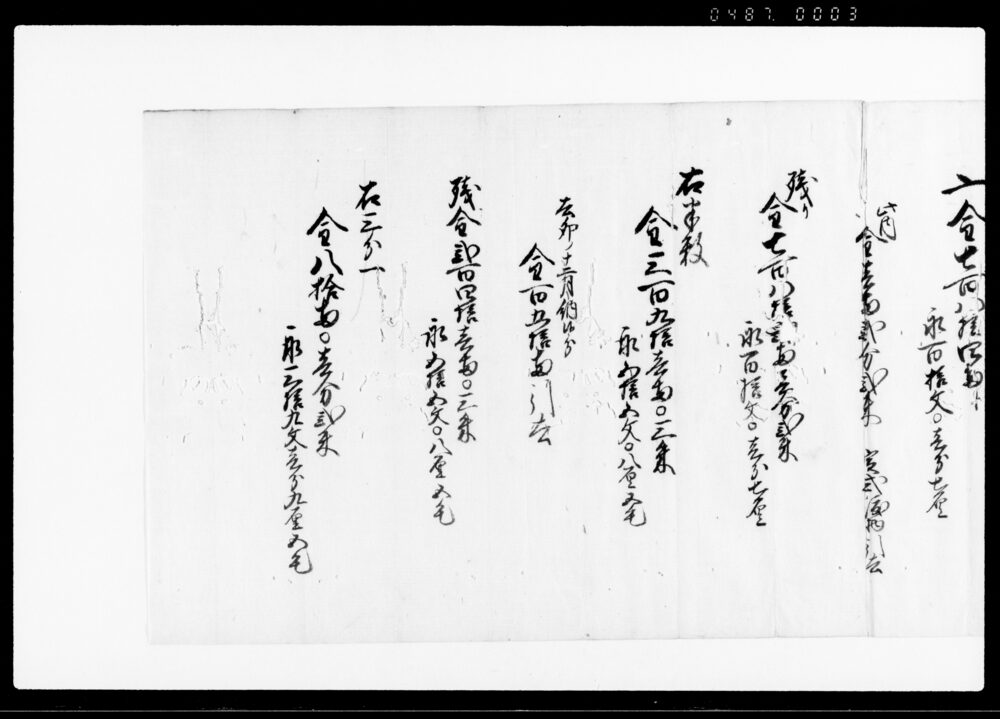 0487. 0003
一金七百八拾四両ト
永百拾文〇壱分七厘
此内
金壱両弐分弐朱 引去
残り
金七百八拾弐両壱分弐朱
永百拾文〇壱分七厘
右半数
金三百九拾壱両〇三朱
永五拾五文〇八厘五毛
去卯ノ十二月納候分
金百五拾両引去
残金弐百四拾壱両〇三朱
永五拾五文〇八厘五毛
右三分一
金八拾両〇壱分弐朱
永三拾九文壱分九厘五毛